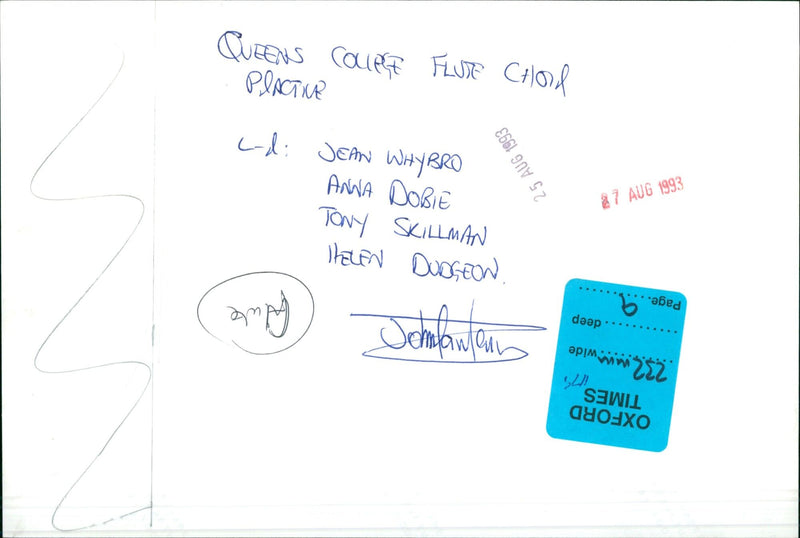 QUEENS COLLEGE FLUTE CHOIR
PRACTICE
L-R: JEAN WHYBRO
ANNA DOBIE
TONY SKILLMAN
HELEN DUDGEON.
25 AUG 1993
27 AUG 1993
Flute
OXFORD
TIMES
232 mm wide
deep
Page. 9